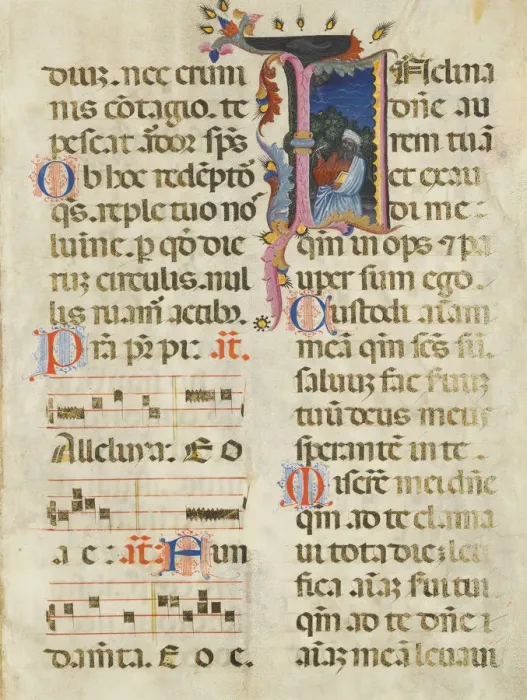 diuz. nec crimi
nis cōtagio. te
pescat ardor spūs
Ob hoc redēptō
q̄s. reple tuo no
lumine. p̄ qō die
ruz circulis. nul
lis ruam̄ actib9.
P rā p̄r pr: añ.
Alleluya: E O
a e: añ. Nun
damīta. E O E.
Inclina
dn̄e au
rem tuā
et exau
di me:
qm̄ in ops ⁊ pa
uper sum ego.
Custodi aīam
meā qm̄ scs su.
saluuz fac seruuz
tuū deus meus
sperantē in te.
Miserē mei dn̄e
qm̄ ad te clama
ui tota die: leti
fica aīaz serui tui
qm̄ ad te dn̄e
aīaz meā leuaui